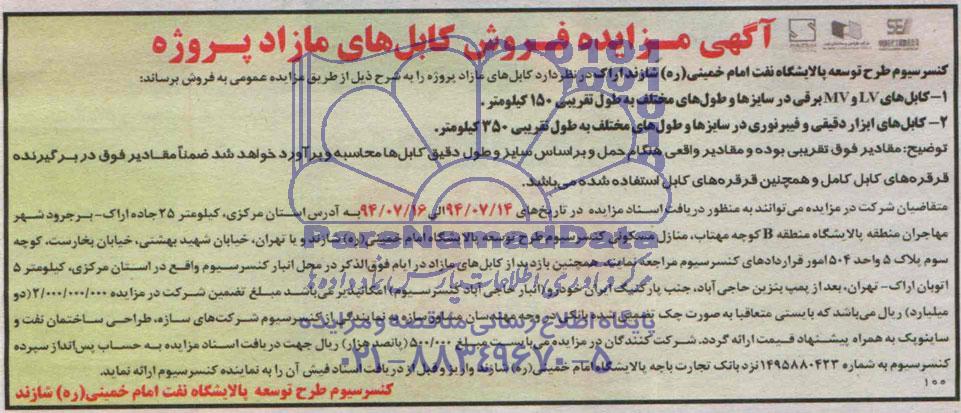 آگهی مزایده فروش کابل‌های مازاد پروژه
کنسرسیوم طرح توسعه پالایشگاه نفت امام خمینی(ره) شازند اراک در نظر دارد کابل‌های مازاد پروژه را به شرح ذیل از طریق مزایده عمومی به فروش برساند:
۱-کابل‌های LV و MV برقی در سایزها و طول‌های مختلف به طول تقریبی ۱۵۰ کیلومتر.
۲- کابل‌های ابزار دقیقی و فیبرنوری در سایزها و طول‌های مختلف به طول تقریبی ۳۵۰ کیلومتر.
توضیح: مقادیر فوق تقریبی بوده و مقادیر واقعی هنگام حمل و براساس سایز و طول دقیق کابل‌ها محاسبه و برآورد خواهد شد ضمناً مقادیر فوق در برگیرنده
قرقره‌های کابل کامل و همچنین قرقره‌های کابل استفاده شده می‌باشد.
متقاضیان شرکت در مزایده می‌توانند به منظور دریافت اسناد مزایده در تاریخ‌های ۹۴/۰۷/۱۴ الی ۹۴/۰۷/۱۶ به آدرس استان مرکزی، کیلومتر ۲۵ جاده اراک- بروجرد شهر
مهاجران منطقه پالایشگاه منطقه B کوچه مهتاب، منازل مسکونی کنسرسیوم طرح توسعه پالایشگاه امام خمینی(ره) شازند و یا تهران، خیابان شهید بهشتی، خیابان پخارست، کوچه
سوم پلاک ۵ واحد ۵۰۴ امور قراردادهای کنسرسیوم مراجعه نمایند. همچنین بازدید از کابل‌های مازاد در ایام فوق‌الذکر در محل انبار کنسرسیوم واقع در استان مرکزی، کیلومتر ۵
اتوبان اراک- تهران، بعد از پمپ بنزین حاجی آباد، جنب پارکینگ ایران خودرو (انبار حاجی آباد کنسرسیوم) امکانپذیر می‌باشد. مبلغ تضمین شرکت در مزایده ۲/۰۰۰/۰۰۰/۰۰۰ (دو
میلیارد) ریال می‌باشد که بایستی متعاقبا به صورت چک تضمین شده بانکی در وجه مهندسان مشاور سازه به نمایندگی از کنسرسیوم شرکت‌های سازه، طراحی ساختمان نفت و
ساینوپک به همراه پیشنهاد قیمت ارائه گردد. شرکت کنندگان در مزایده می‌بایست مبلغ ۵۰۰/۰۰۰ (پانصد هزار) ریال جهت دریافت اسناد مزایده به حساب پس‌انداز سپرده
کنسرسیوم به شماره ۱۴۹۵۸۸۰۴۲۳ نزد بانک تجارت باجه پالایشگاه امام خمینی(ره) شازند واریز و قبل از دریافت اسناد فیش آن را به نماینده کنسرسیوم ارائه نمایند.
۱۰۰
کنسرسیوم طرح توسعه پالایشگاه نفت امام خمینی(ره) شازند
ParsNamadData
پایگاه اطلاع رسانی مناقصه و مزایده
۰۲۱-۸۸۳۴۹۶۷۰-۵